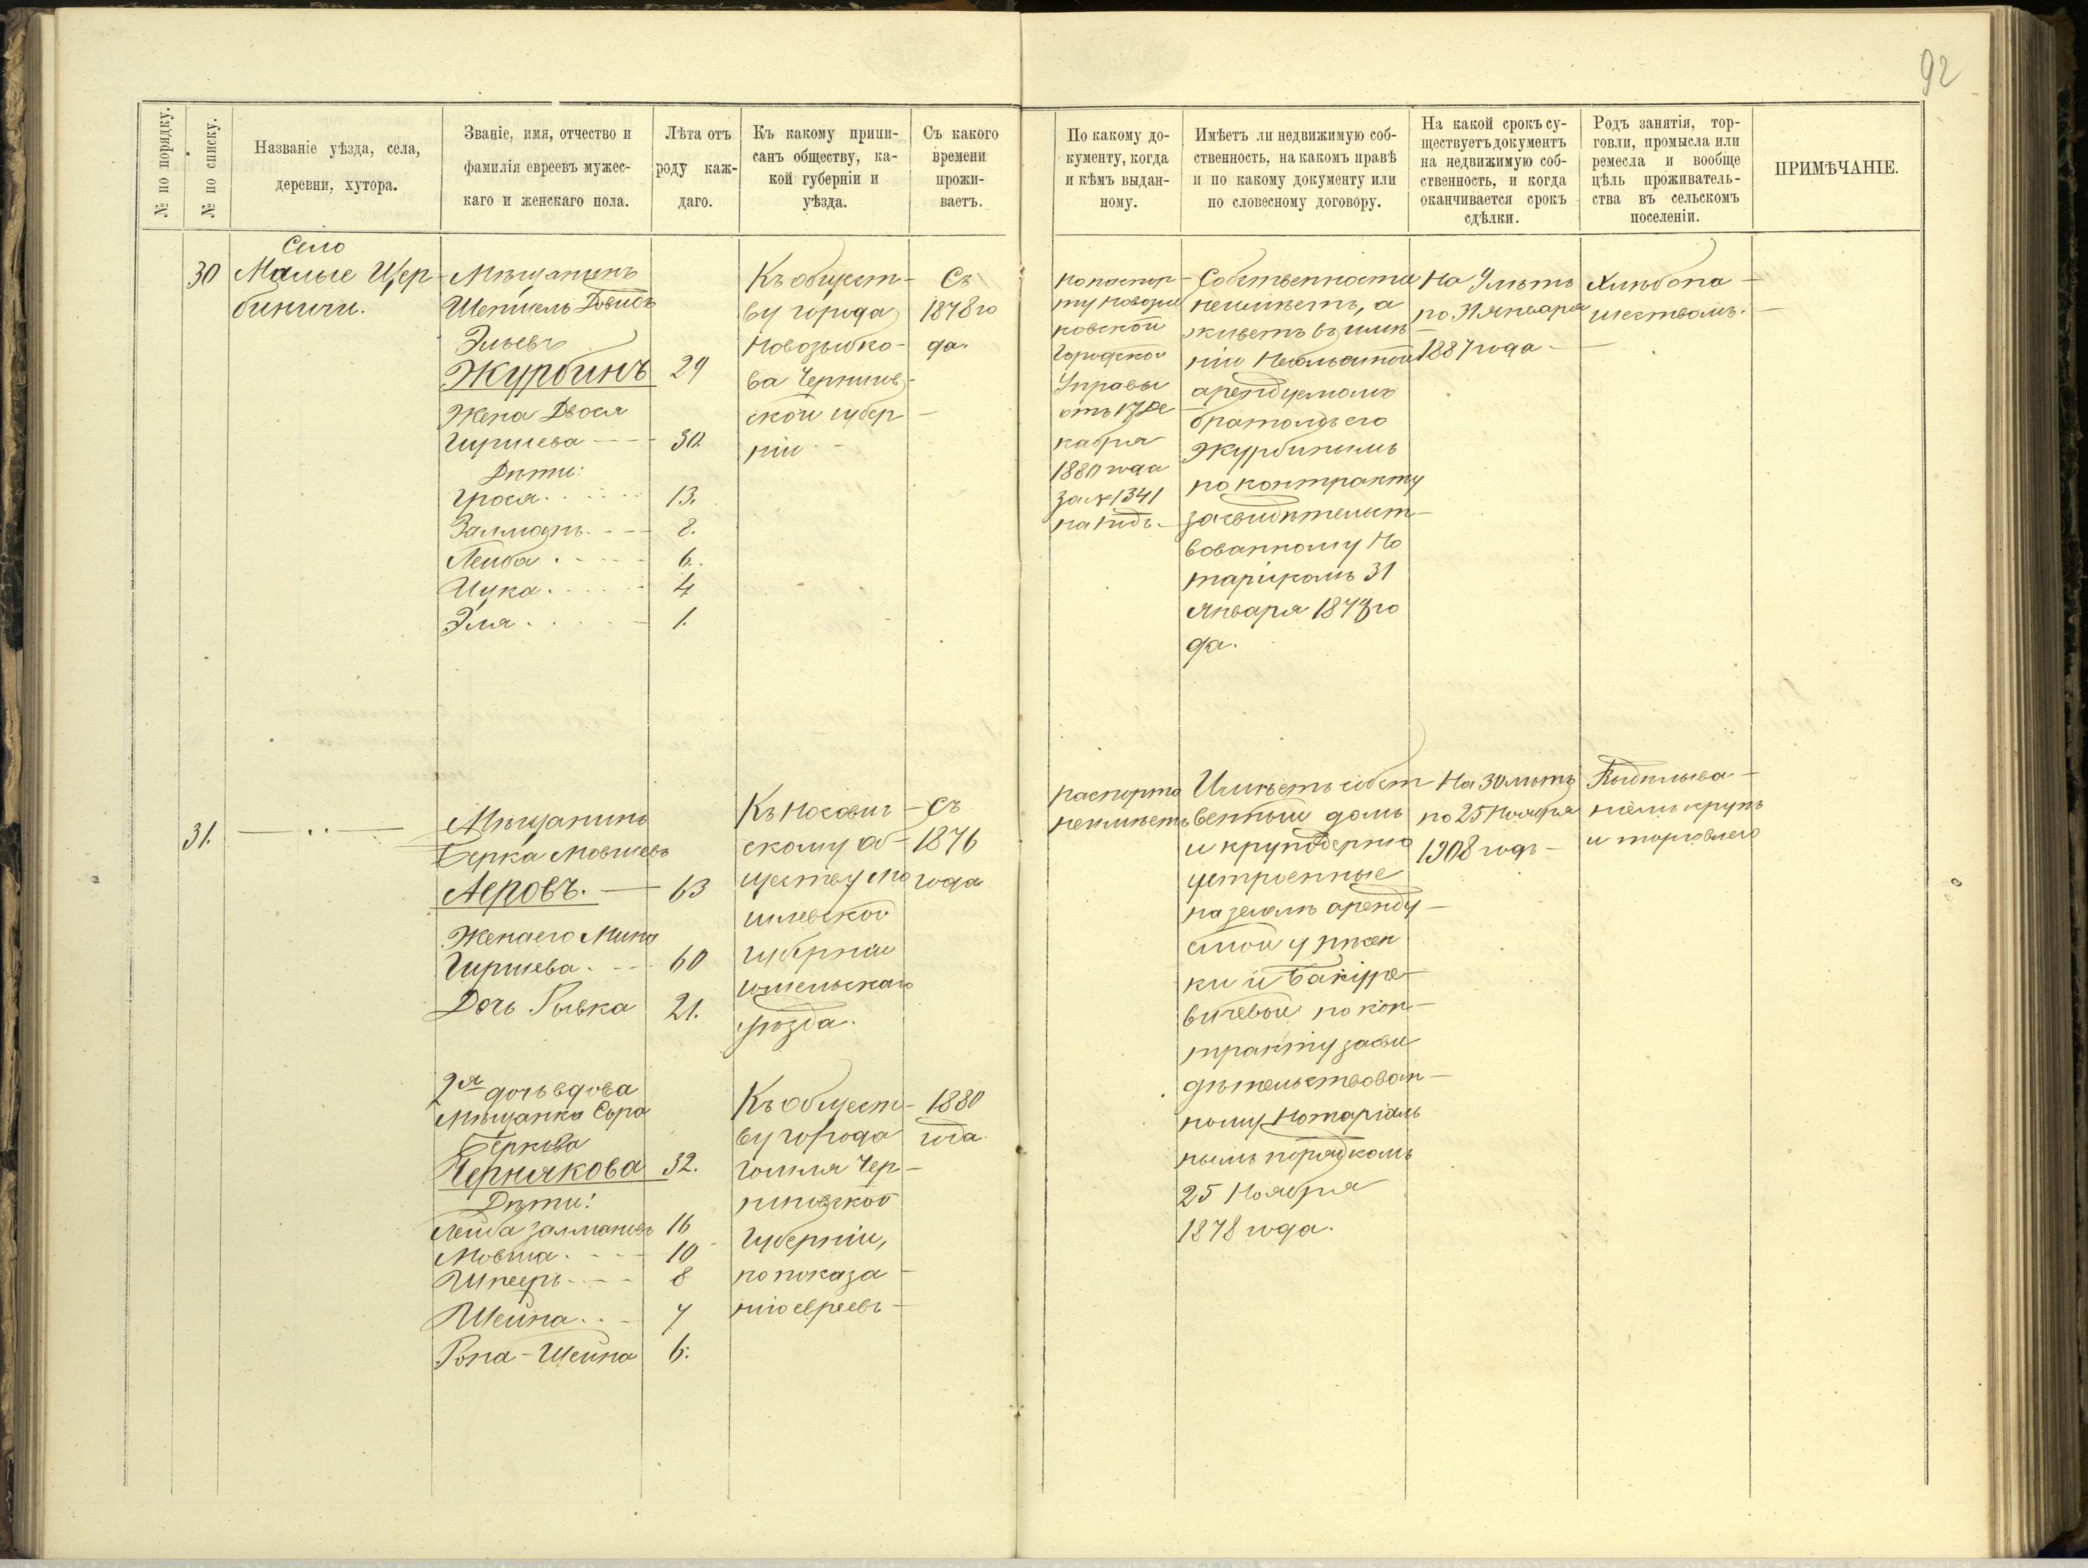 92
№ по порядку.
№ по списку.
Названіе уѣзда, села,
деревни, хутора.
Званіе, имя, отчество и
фамилія евреевъ мужес-
каго и женскаго пола.
Лѣта отъ
роду каж-
даго.
Къ какому припи-
санъ обществу, ка-
кой губерніи и
уѣзда.
Съ какого
времени
прожи-
ваетъ.
По какому до-
кументу, когда
и кѣмъ выдан-
ному.
Имѣетъ ли недвижимую соб-
ственность, на какомъ правѣ
и по какому документу или
по словесному договору.
На какой срокъ су-
ществуетъ документъ
на недвижимую соб-
ственность, и когда
оканчивается срокъ
сдѣлки.
Родъ занятія, тор-
говли, промысла или
ремесла и вообще
цѣль проживатель-
ства въ сельскомъ
поселеніи.
ПРИМѢЧАНІЕ.
30
Село
Малые Щер
биничи.
Мѣщанинъ
Довидъ
Эльевъ
Журбинъ 29
Жена Двося
Гиршева 30.
Дѣти:
Грося 13.
Залманъ 8.
Лейба 6.
Цука 4
Эля 1.
Къ общест-
ву города
Новозыбко-
ва Чернигов-
ской губер
ніи
Съ
1878 го
да.
По паспор-
ту Новозыб
ковской
Городской
Управы
отъ 17 Де
кабря
1880 года
за № 1341
на годъ.
Собственности
неимѣетъ, а
живетъ въ имѣ
ніи
арендуемомъ
братомъ его
Журбинымъ
по контракту
засвидѣтельст-
вованному Но
таріусомъ 31
Января 1878 го
да.
На 9 лѣтъ
по 31 января
1887 года
Хлѣбопа-
шествомъ.
31.
Мѣщанинъ
Берка Мовшевъ
Аеровъ. 63
Жена его Мина
Гиршева. 60
Дочь Рывка 21.
Къ Носович-
скому об-
ществу Мо
гилевской
губерніи
Гомельскаго
уѣзда.
Съ
1876
года
Паспорта
неимѣетъ
Имѣетъ собст
венный домъ
и круподерню
устроенные
на землѣ аренду-
емой у
ки и
вичевой по кон-
тракту засви
дѣтельствован-
ному Нотаріаль
нымъ порядкомъ
25 Ноября
1878 года.
На 30 лѣтъ
по 25 Ноября
1908 года
Выдѣлыва-
ніемъ крупъ
и торговлею
2я дочь вдова
Мѣщанка Сора
Беркова
Чернякова 32.
Дѣти:
Лейба Залмановъ 16
Мовша. 10
Шнееръ 8
Шейна. 7
Рона-Шейна 6.
Къ общест-
ву города
Гомля Чер-
ниговской
Губерніи,
по показа-
нію евреевъ
1880
года.